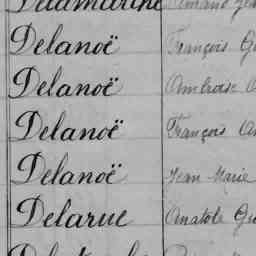 Delamarche Armand
Delanoë François
Delanoë Ambroise
Delanoë François
Delanoë Jean Marie
Delarue Anatole